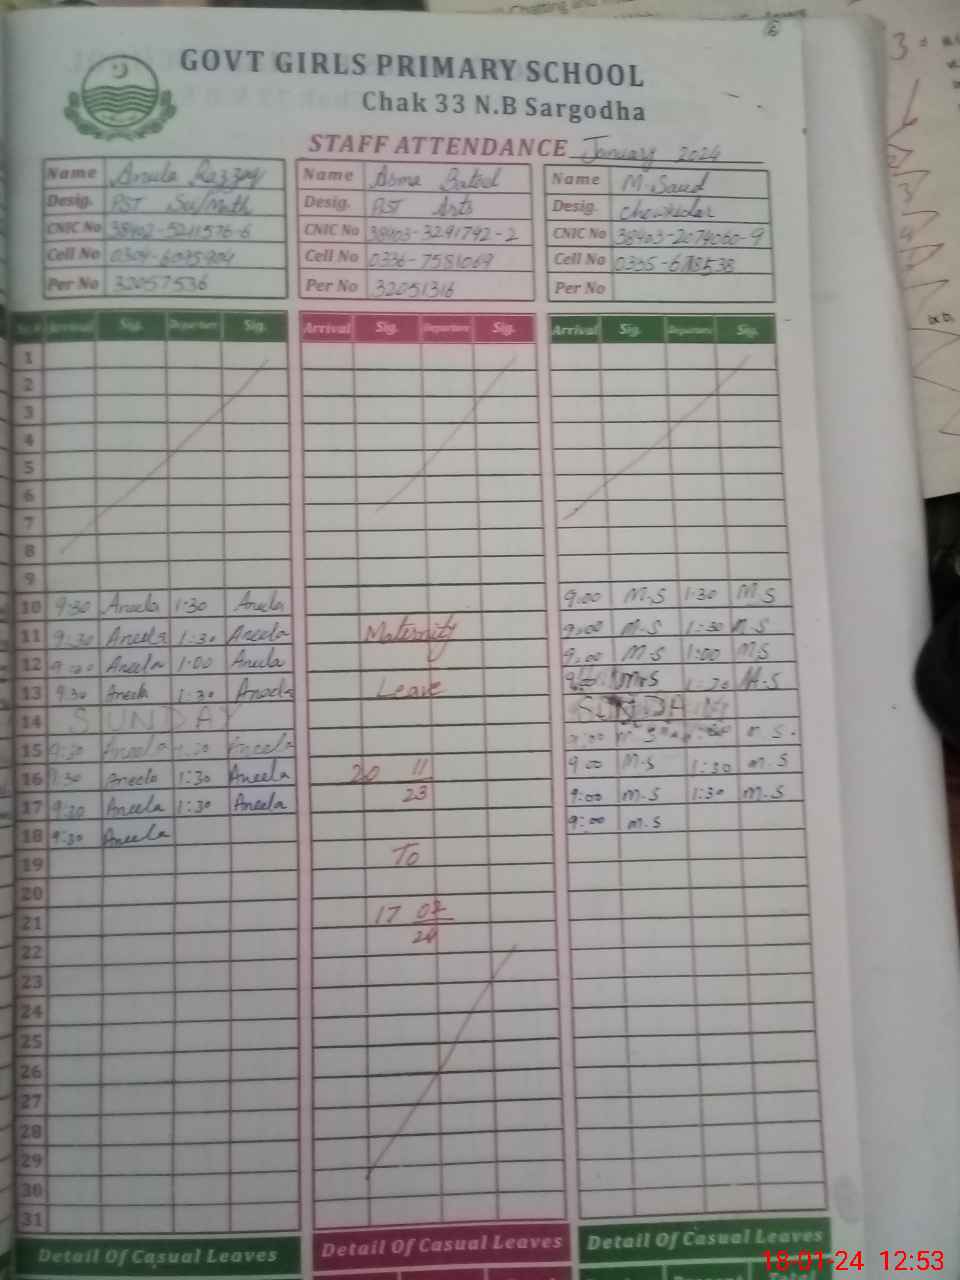 GOVT GIRLS PRIMARY SCHOOL
Chak 33 N.B Sargodha
STAFF ATTENDANCE January 2024
Name Aneela Razzaq Name Asma Batool Name M Saud
Desig. PST Sci/Math Desig. PST Arts Desig. Chowkidar
CNIC No 38402-5211576-6 CNIC No 38403-3291792-2 CNIC No 38403-2074060-9
Cell No Cell No 0336-7581069 Cell No
Per No 32057536 Per No 32051316 Per No
Arrival Sig. Departure Sig. Arrival Sig. Departure Sig. Arrival Sig. Departure Sig.
1
2
3
4
5
6
7
8
9
10 9:30 Aneela 1:30 Aneela 9:00 M.S 1:30 M.S
11 9:30 Aneela 1:30 Aneela Maternity 9:00 M.S 1:30 M.S
12 9:30 Aneela 1:00 Aneela 9:00 M.S 1:00 M.S
13 9:30 Aneela 1:30 Aneela Leave M.S 1:30 M.S
14 SUNDAY SUNDAY
15 9:30 Aneela 1:30 Aneela 9:00 M.S.
16 9:30 Aneela 1:30 Aneela 20 11 9:00 M.S 1:30 M.S
17 9:30 Aneela 1:30 Aneela 23 9:00 M.S 1:30 M.S
18 9:30 Aneela 9:00 M.S
19 To
20
21 17 02
22 24
23
24
25
26
27
28
29
30
31
Detail Of Casual Leaves Detail Of Casual Leaves Detail Of Casual Leaves
18-01-24 12:53